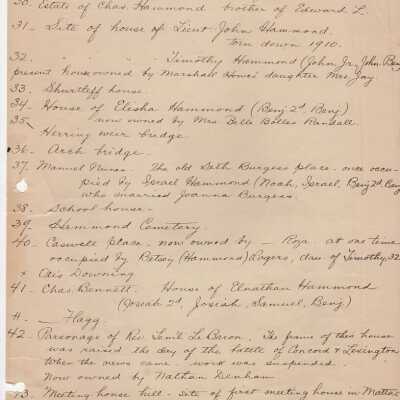 30. Estate of Chas. Hammond brother of Edward L.
31. Site of house of Lieut John Hammond.
Torn down 1910.
32. " " " " Timothy Hammond (John Jr, John, Benj
present house owned by Marshall Howes' daughter Mrs Jay
33. Shurtleff house.
34. House of Elisha Hammond (Benj 2d, Benj)
now owned by Mrs Belle Bolles Randall.
35. Herring weir bridge.
36. Arch bridge.
37. Manuel Nunes. The old Seth Burgess place once occu-
pied by Israel Hammond (Noah, Israel, Benj 2d, Benj
who married Joanna Burgess.
38. School house.
39. Hammond Cemetery.
40. Caswell place, now owned by — Roza. at one time
occupied by Betsey (Hammond) Rogers, dau. of Timothy, 32
+ Downing
41. Chas. Bennett. House of Elnathan Hammond
(Josiah 2d, Josiah, Samuel, Benj)
#. — Flagg.
42. Parsonage of Rev. Lem'l Le Baron. The frame of this house
was raised the day of the battle of Concord & Lexington
When the news came, work was suspended.
Now owned by Nathan Denham
43. Meeting house hill. Site of first meeting house in Mattap